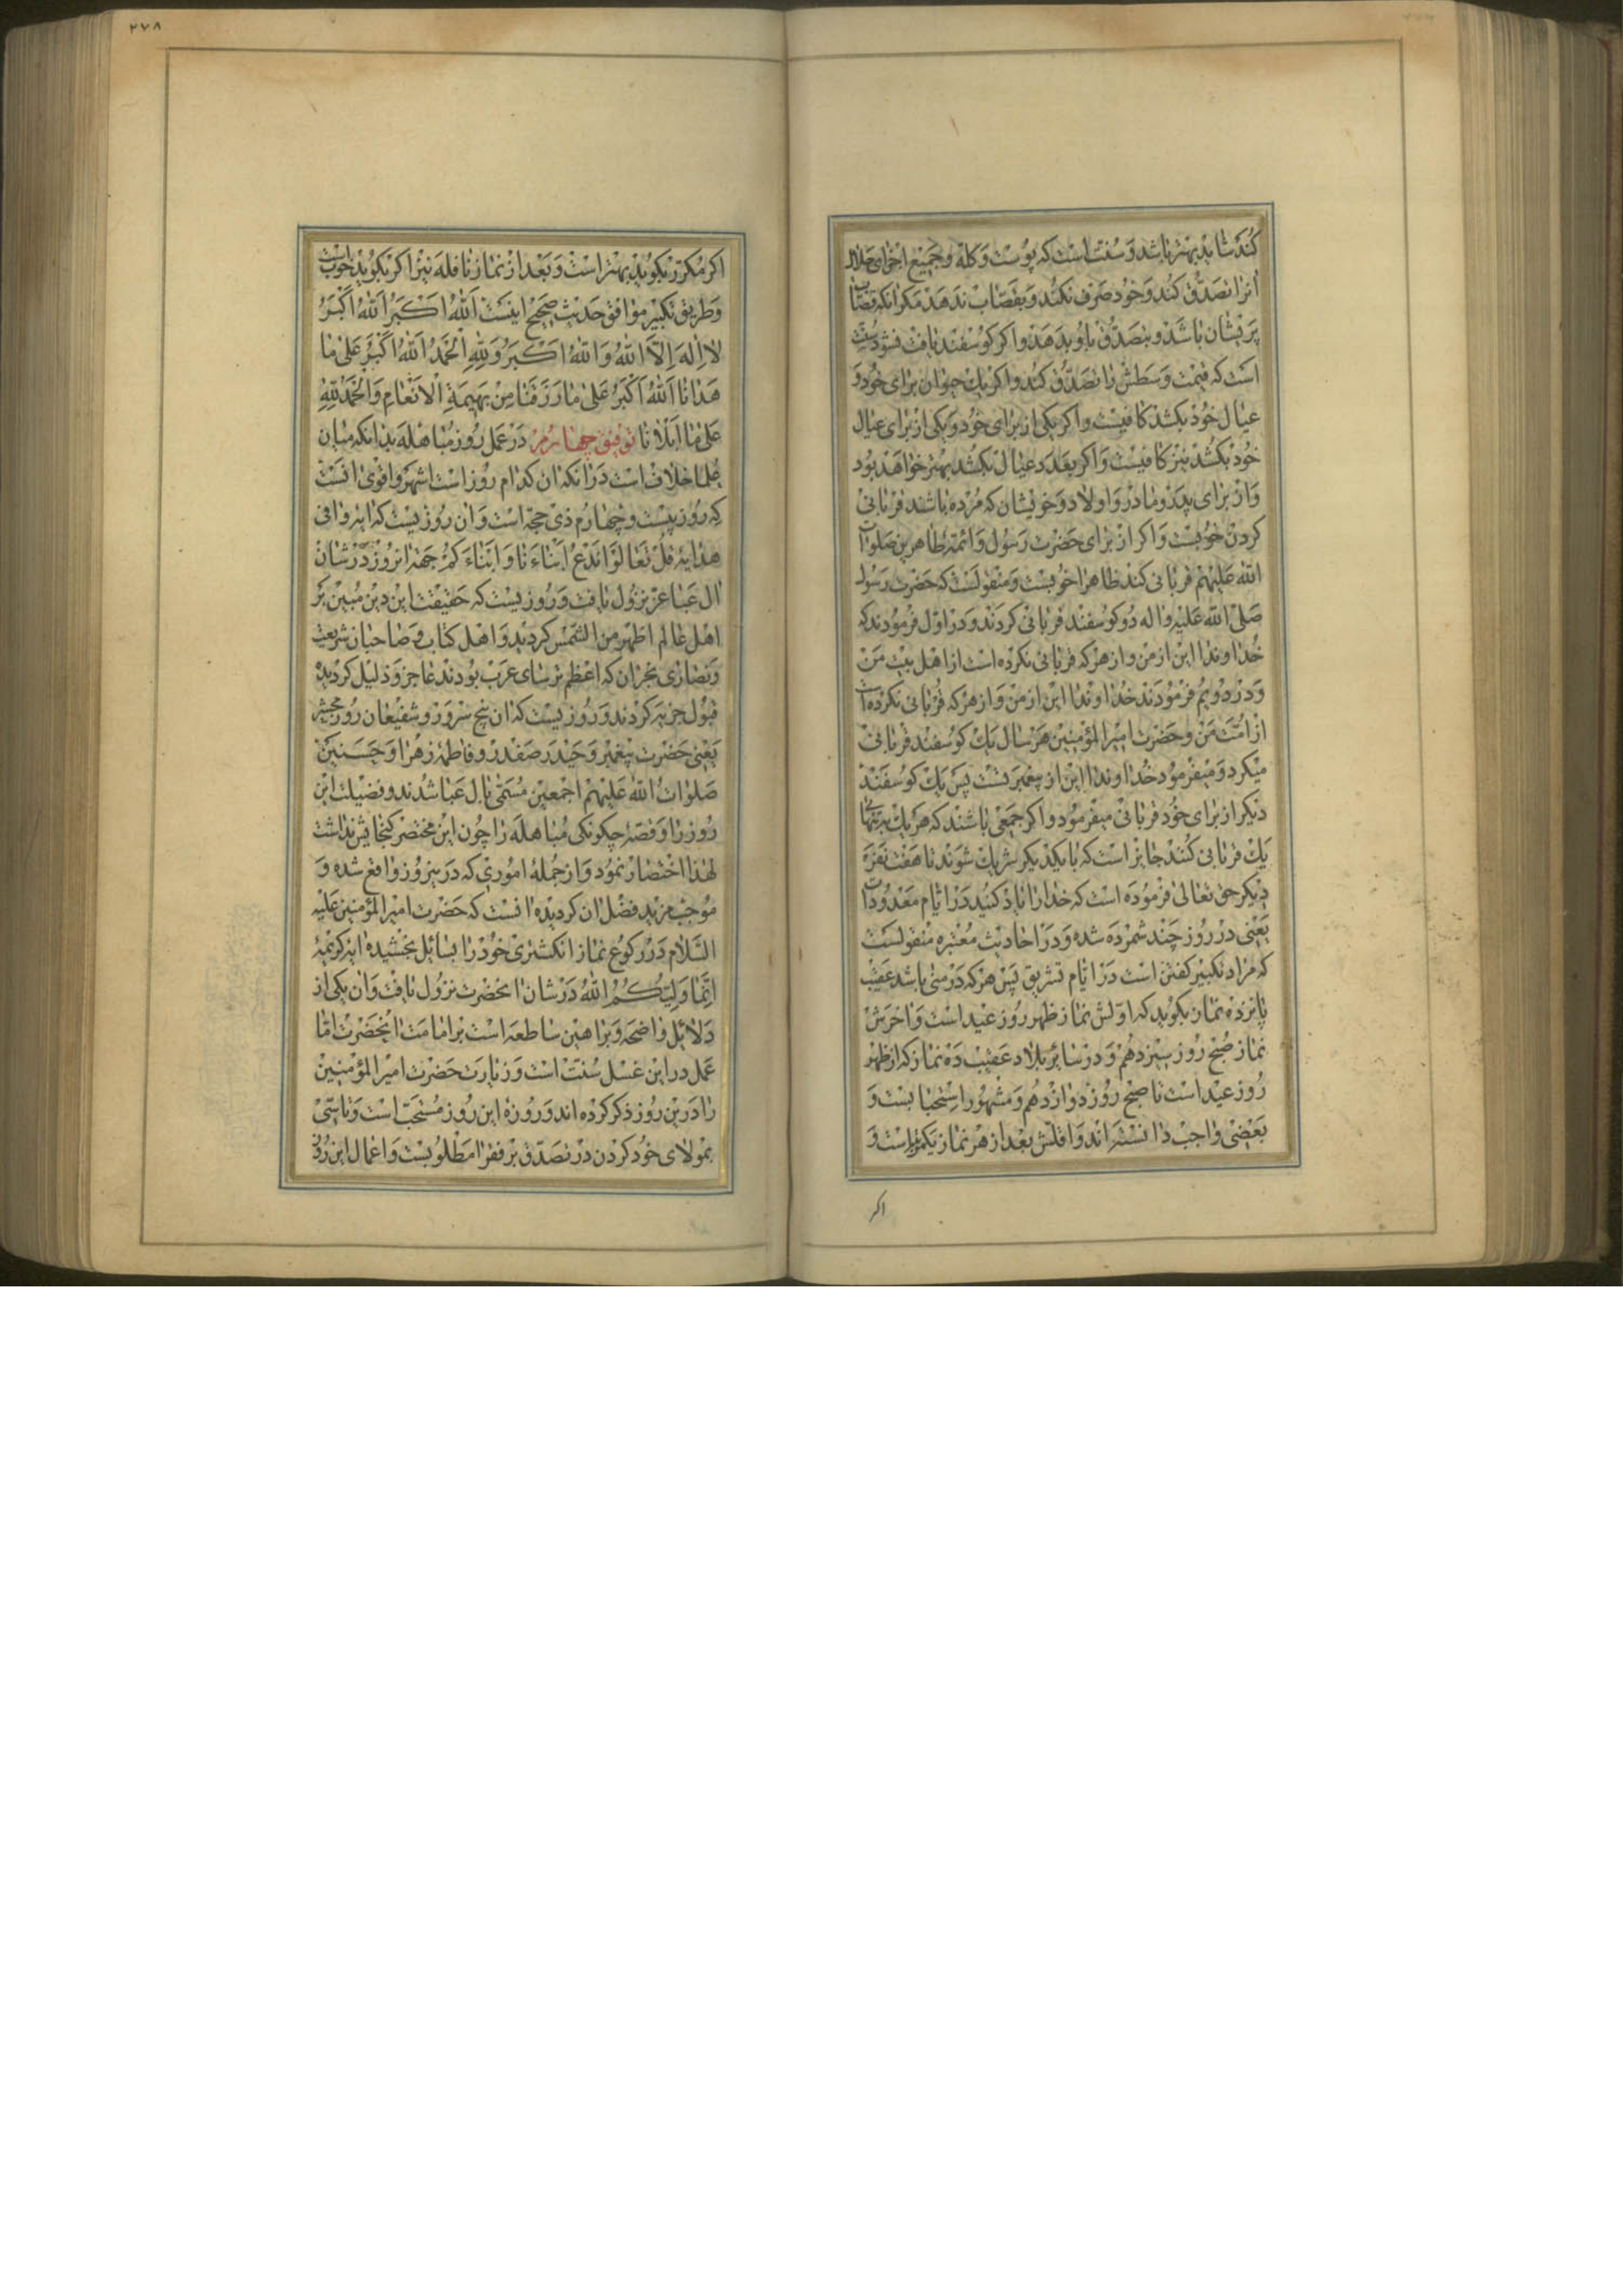 کند شاید بهتر باشد و سنت است که پوست و کله و جمیع اجزای حلال
انرا تصدق کند و خود صرف نکند و بقصاب ندهد مکر انکه قصاب
پریشان باشد و بتصدق باو بدهد و اکر کوسفند نایافت شود سنت
است که قیمت وسطش را تصدق کند و اکر یك حیوان برای خود و
عیال خود بکشد کافیست و اکر یکی از برای خود و یکی از برای عیال
خود بکشد نیز کافیست و اکر بعدد عیال بکشد بهتر خواهد بود
و از برای پدر و مادر و اولاد و خویشان که مرده باشند قربانی
کردن خوبست و اکر از برای حضرت رسول و ائمه طاهرین صلوات
الله علیهم قربانی کند ظاهرا خوبست و منقولست که حضرت رسول
صلی الله علیه واله دو کوسفند قربانی کردند و در اول فرمودند که
خداوندا این از من و از هر که قربانی نکرده است از اهل بیت من
و در دویم فرمودند خداوندا این از من و از هر که قربانی نکرده است
از امت من و حضرت امیرالمؤمنین هر سال یك کوسفند قربانی
میکرد و میفرمود خداوندا این از پیغمبر تست پس یك کوسفند
دیکر از برای خود قربانی میفرمود و اکر جمعی باشند که هر یك به تنهائی
یك قربانی کنند جایز است که با یکدیکر شریك شوند تا هفت نفر و
دیکر حق تعالی فرموده است که خدا را یاد کنید در ایام معدودات
یعنی در روز چند شمرده شده و در احادیث معتبره منقولست
که مراد تکبیر کفتن است در ایام تشریق پس هر که در منی باشد عقیب
پانزده نماز بکوید که اولش نماز ظهر روز عید است و اخرش
نماز صبح روز سیزدهم و در سائر بلاد عقیب ده نماز که از ظهر
روز عید است تا صبح روز دوازدهم و مشهور استحبابست و
بعضی واجب دانسته‌اند و اقلش بعد از هر نماز یکمرتبه است و
اکر
۲۷۸
اکر مکرر بکوید بهتر است و بعد از نماز نافله نیز اکر بکوید خوب است
و طریق تکبیر موافق حدیث صحیح اینست اَللهُ اَکْبَرُ اَللهُ اَکْبَرُ
لا اِلهَ اِلاَّ اللهُ وَاللهُ اَکْبَرُ وَلِلّٰهِ الْحَمْدُ اَللهُ اَکْبَرُ عَلی ما
هَدانا اَللهُ اَکْبَرُ عَلی ما رَزَقَنا مِنْ بَهیمَةِ الْاَنْعامِ وَالْحَمْدُ لِلّٰهِ
عَلی ما اَبْلانا توفیق چهارم در عمل روز مباهله بدانکه میان
علما خلاف است در انکه ان کدام روز است اشهر و اقوی انست
که روز بیست و چهارم ذی حجه است و ان روزیست که ایه وافی
هدایه قل تعالوا ندع ابناءنا و ابناءکم جهة انروز در شان
ال عبا عز نزول یافت و روزیست که حقیقت این دین مبین بر
اهل عالم اظهر من الشمس کردید و اهل کتاب و صاحبان شریعت
و نصاری نجران که اعظم ترسای عرب بودند عاجز و ذلیل کردیده
قبول جزیه کردند و روزیست که ان پنج سرور و شفیعان روز محشر
یعنی حضرت پیغمبر و حیدر صفدر و فاطمه زهرا و حسنین
صلوات الله علیهم اجمعین مسمی بال عبا شدند و فضیلت این
روز را و قصه چکونکی مباهله را چون این مختصر کنجایش نداشت
لهذا اختصار نمود و از جمله اموری که درینروز واقع شده و
موجب مزید فضل ان کردیده انست که حضرت امیرالمؤمنین علیه
السلام در رکوع نماز انکشتری خود را بسائل بخشیده ایه کریمه
انما ولیکم الله در شان انحضرت نزول یافت و ان یکی از
دلائل واضحه و براهین ساطعه است بر امامت انحضرت اما
عمل در این غسل سنت است و زیارت حضرت امیرالمؤمنین
را درین روز ذکر کرده اند و روزه این روز مستحب است و تاسی
بمولای خود کردن در تصدق بر فقرا مطلوبست و اعمال این روز